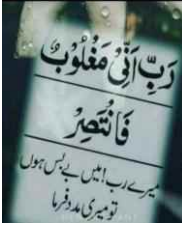 رَبِّ اَنِّیْ مَغْلُوْبٌ
فَانْتَصِرْ
میرے رب! میں بے بس ہوں
تو میری مدد فرما